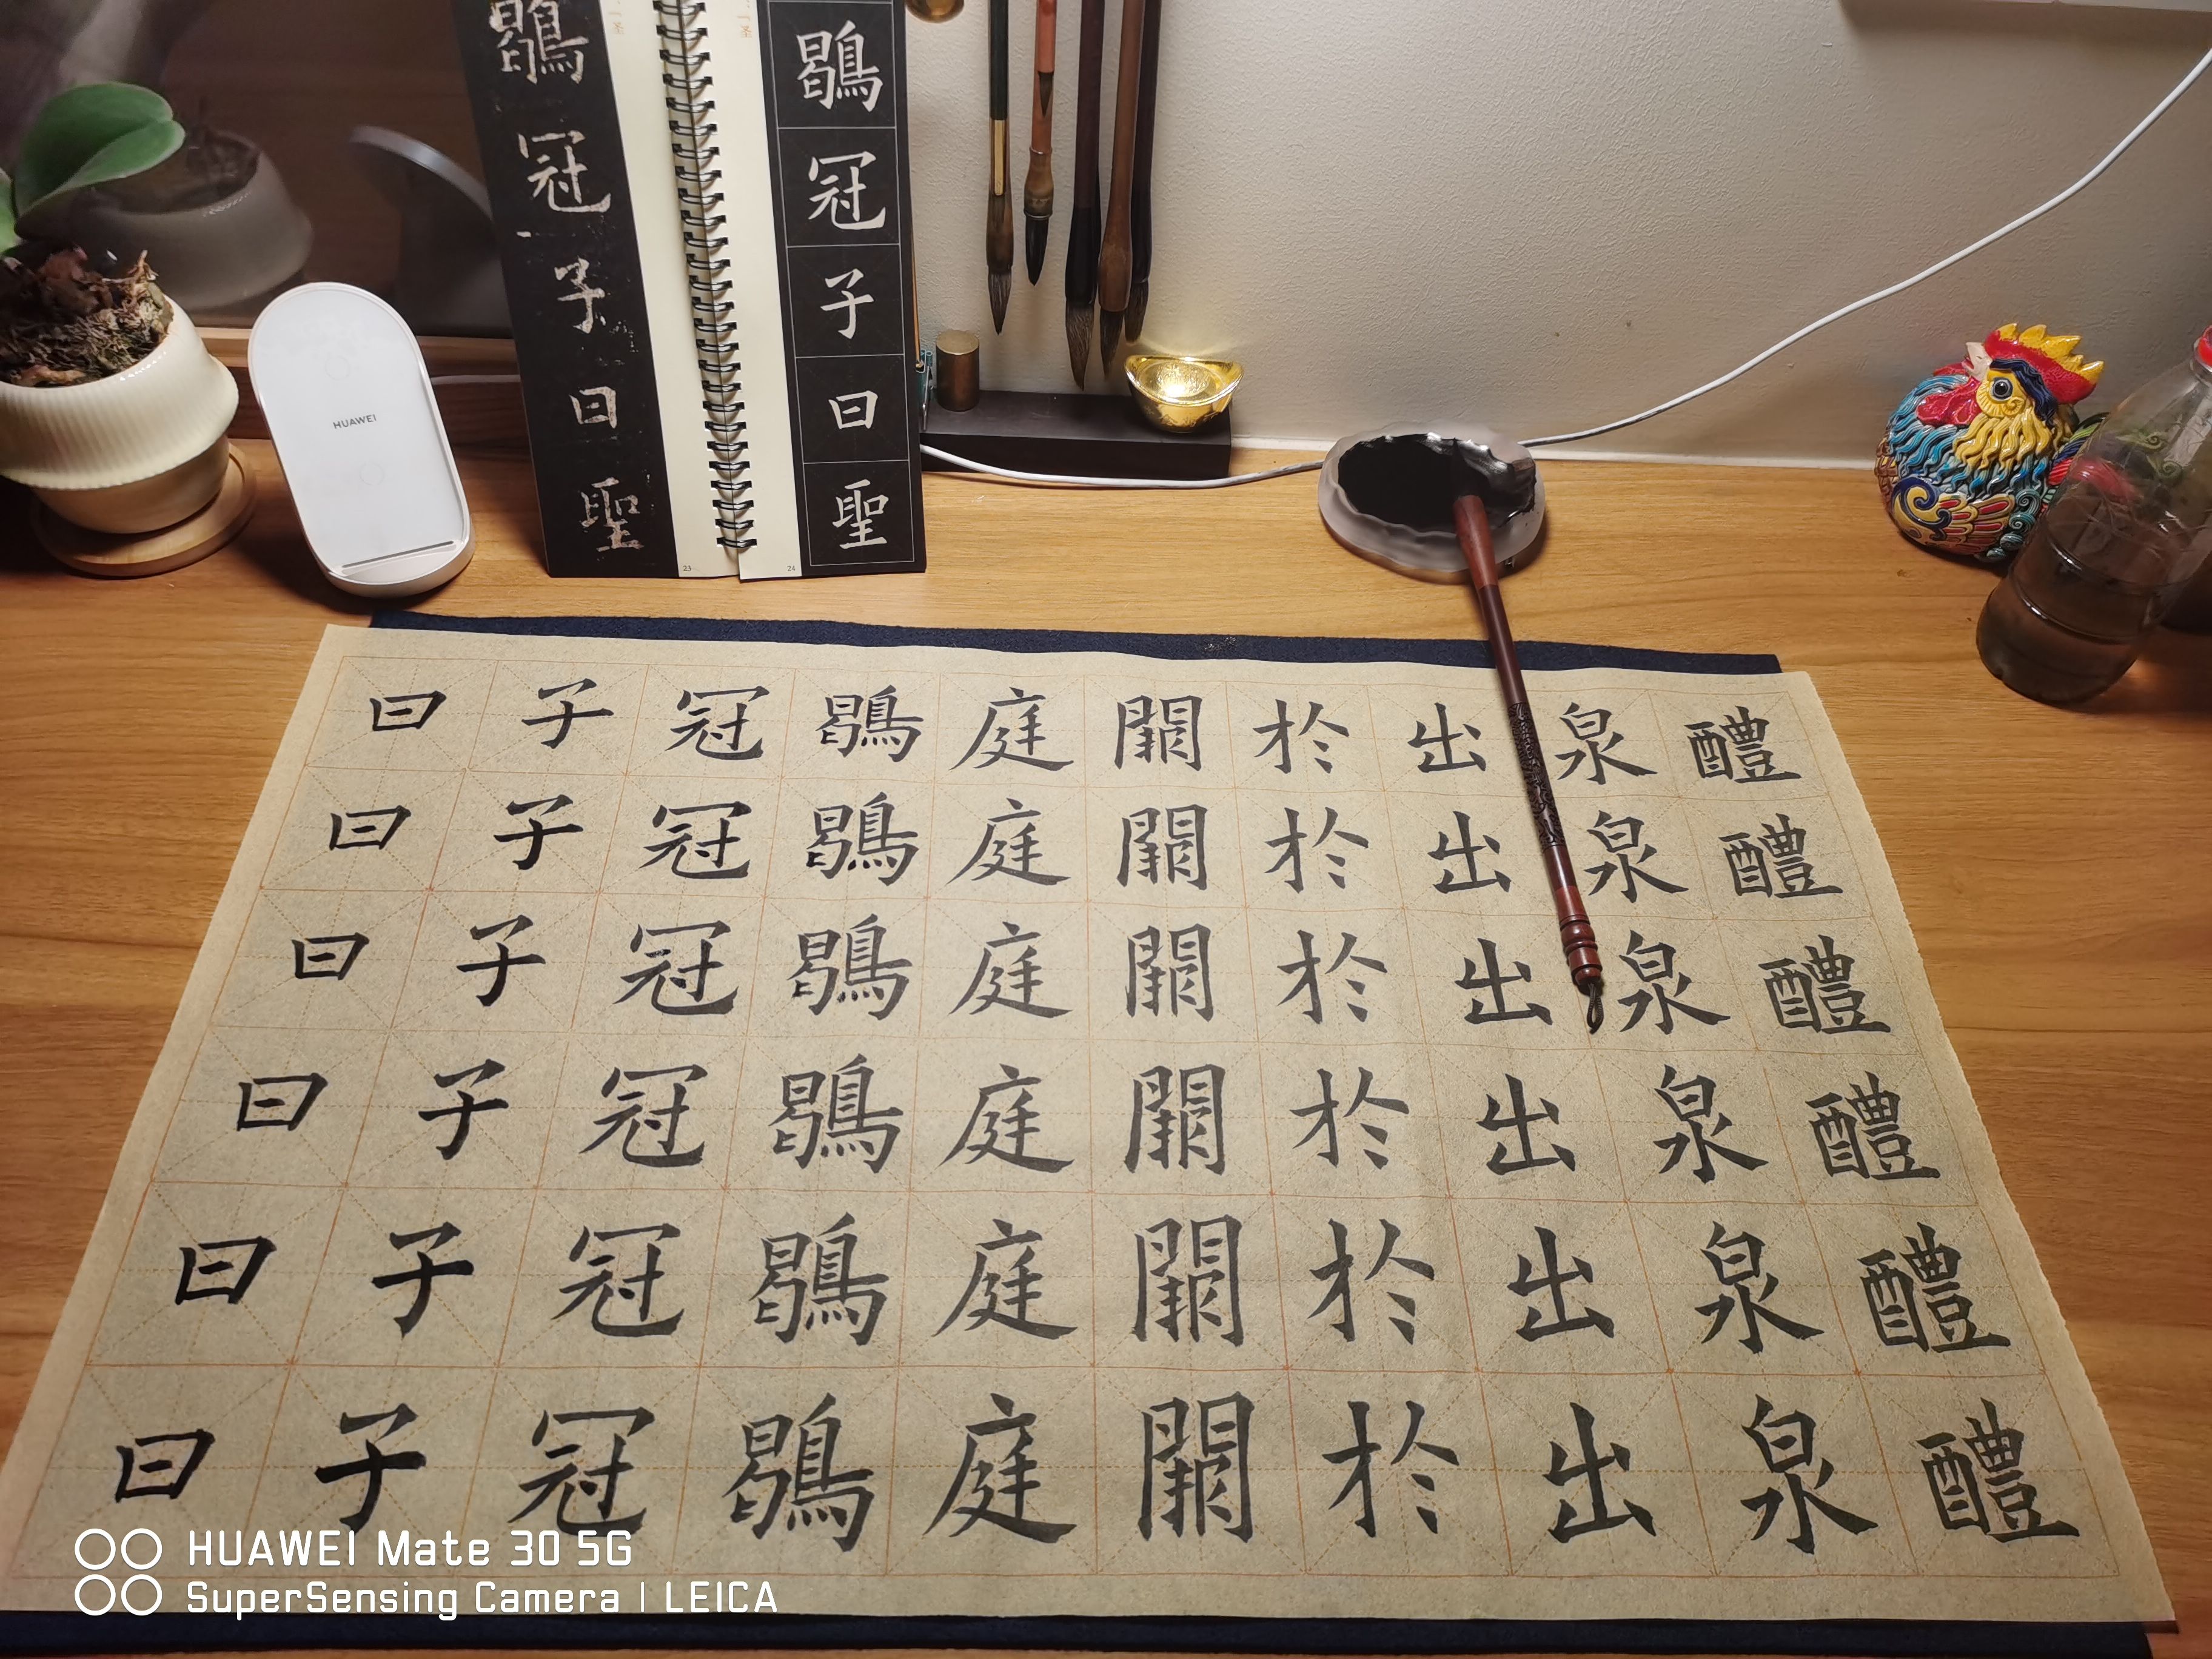 鶡冠子曰聖
23
鶡冠子曰聖
24
HUAWEI
醴醴醴醴醴醴
泉泉泉泉泉泉
出出出出出出
於於於於於於
闕闕闕闕闕闕
庭庭庭庭庭庭
鶡鶡鶡鶡鶡鶡
冠冠冠冠冠冠
子子子子子子
曰曰曰曰曰曰
HUAWEI Mate 30 5G
SuperSensing Camera | LEICA